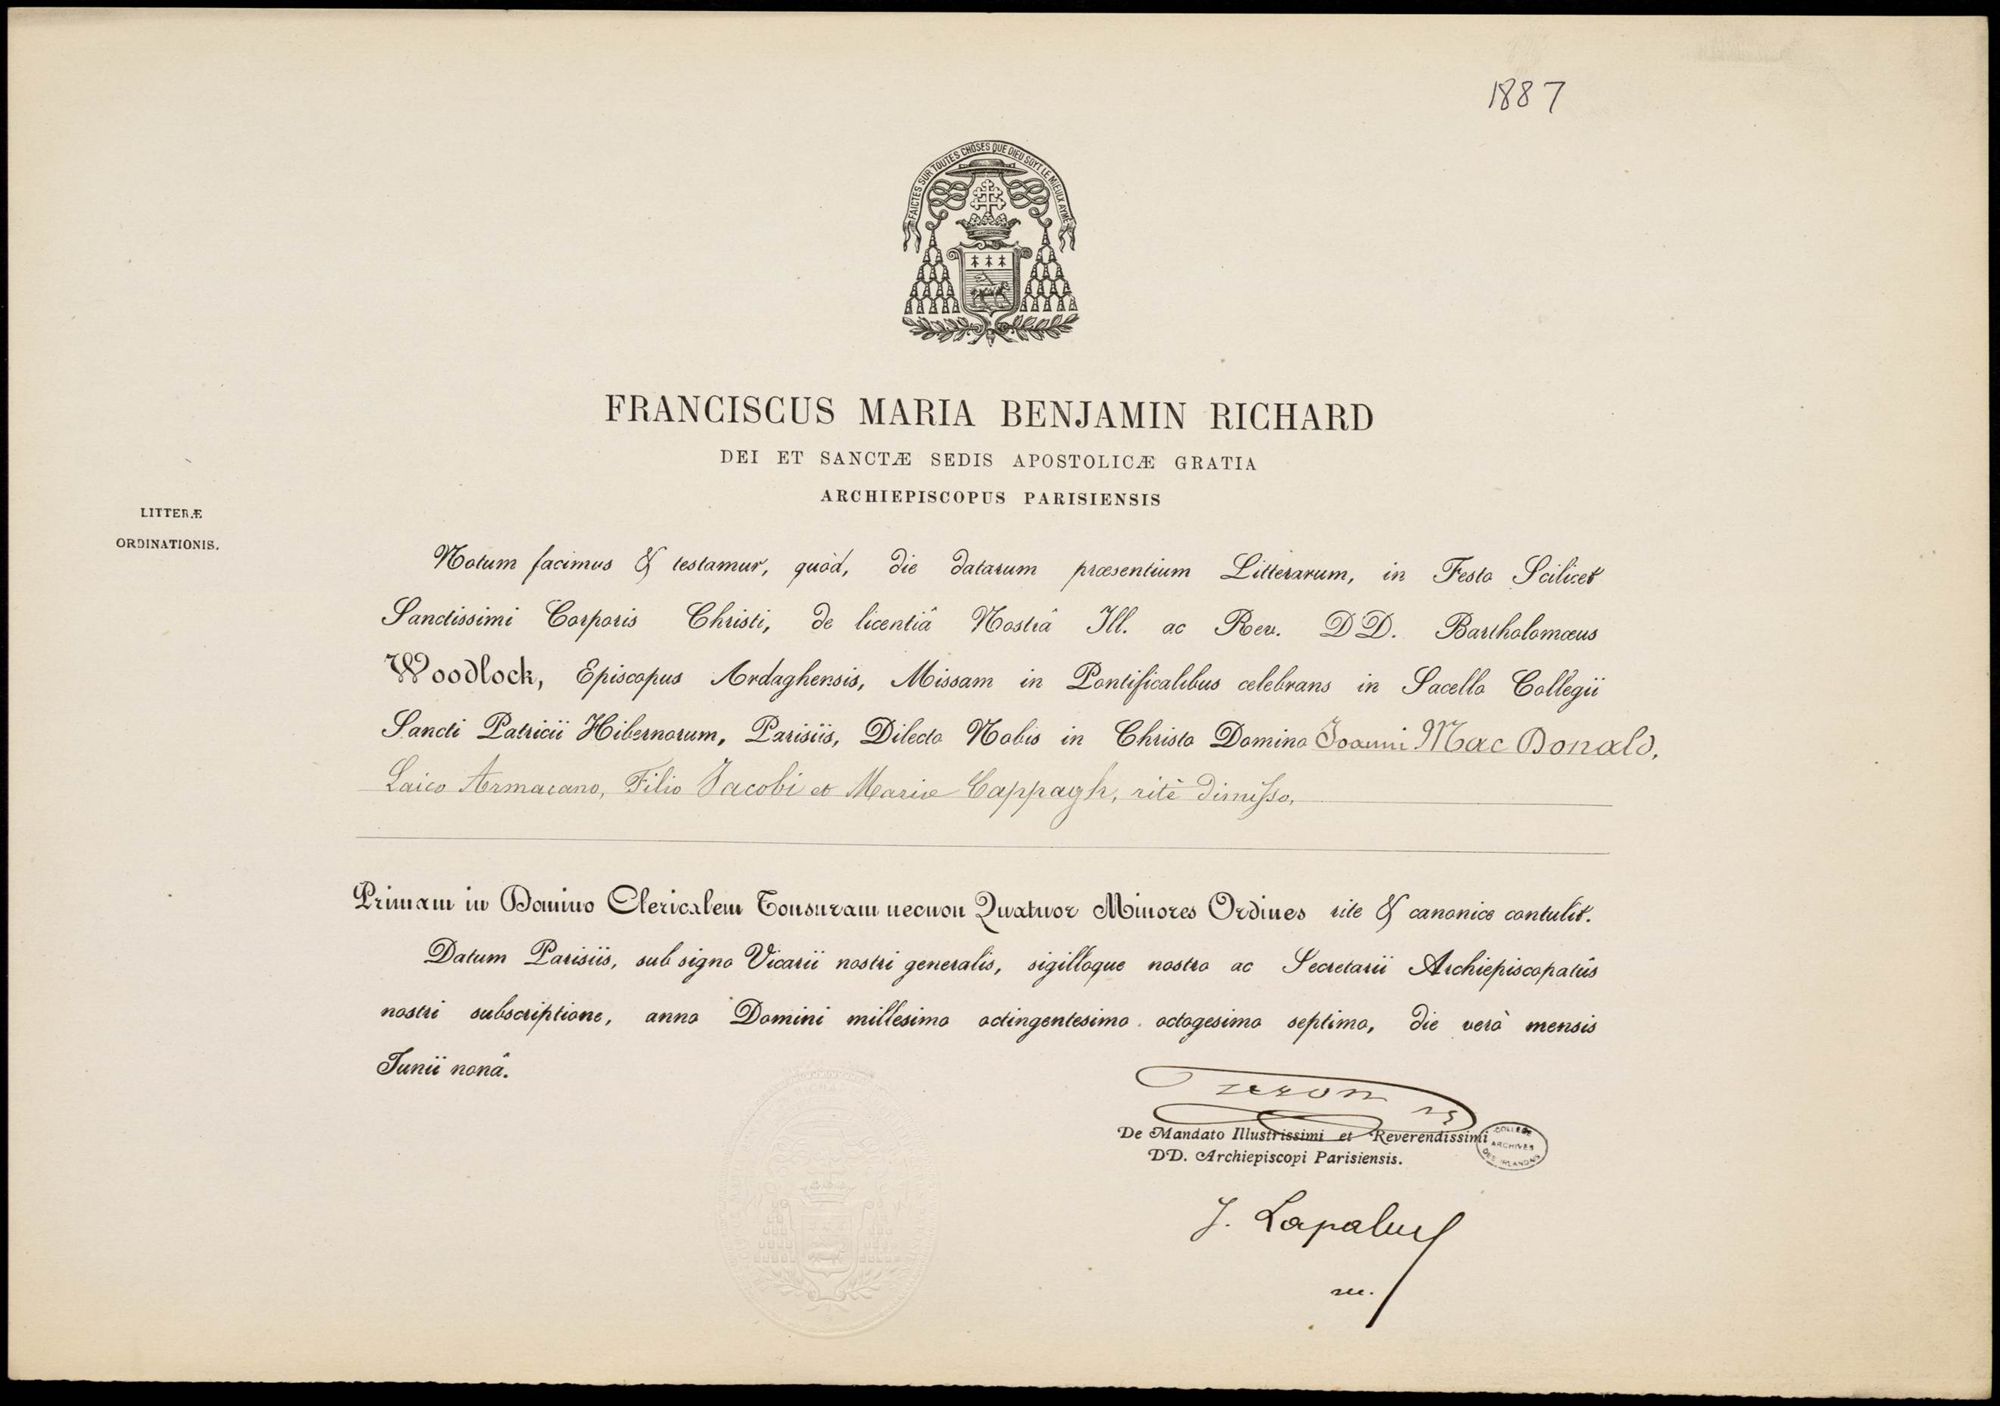 1887
FAICTES SUR TOUTES CHOSES QUE DIEU SOYT LE MIEULX AYMÉ
FRANCISCUS MARIA BENJAMIN RICHARD
DEI ET SANCTÆ SEDIS APOSTOLICÆ GRATIA
ARCHIEPISCOPUS PARISIENSIS
LITTERÆ
ORDINATIONIS.
Notum facimus & testamur, quòd, die datarum præsentium Litterarum, in Festo Scilicet
Sanctissimi Corporis Christi, de licentiâ Nostrâ Ill. ac Rev. DD. Bartholomæus
Woodlock, Episcopus Ardaghensis, Missam in Pontificalibus celebrans in Sacello Collegii
Sancti Patricii Hibernorum, Parisiis, Dilecto Nobis in Christo Domino Joanni Mac Donald,
Laico Armacano, Filio Jacobi et Mariæ Cappagh, ritè dimisso,
Primam in Domino Clericalem Tonsuram necnon Quatuor Minores Ordines rite & canonice contulit.
Datum Parisiis, sub signo Vicarii nostri generalis, sigilloque nostro ac Secretarii Archiepiscopatûs
nostri subscriptione, anno Domini millesimo octingentesimo octogesimo septimo, die verò mensis
Junii nonâ.
De Mandato Illustrissimi et Reverendissimi
DD. Archiepiscopi Parisiensis.
COLLEGE
ARCHIVES
DES IRLANDAIS
J. Lapalme